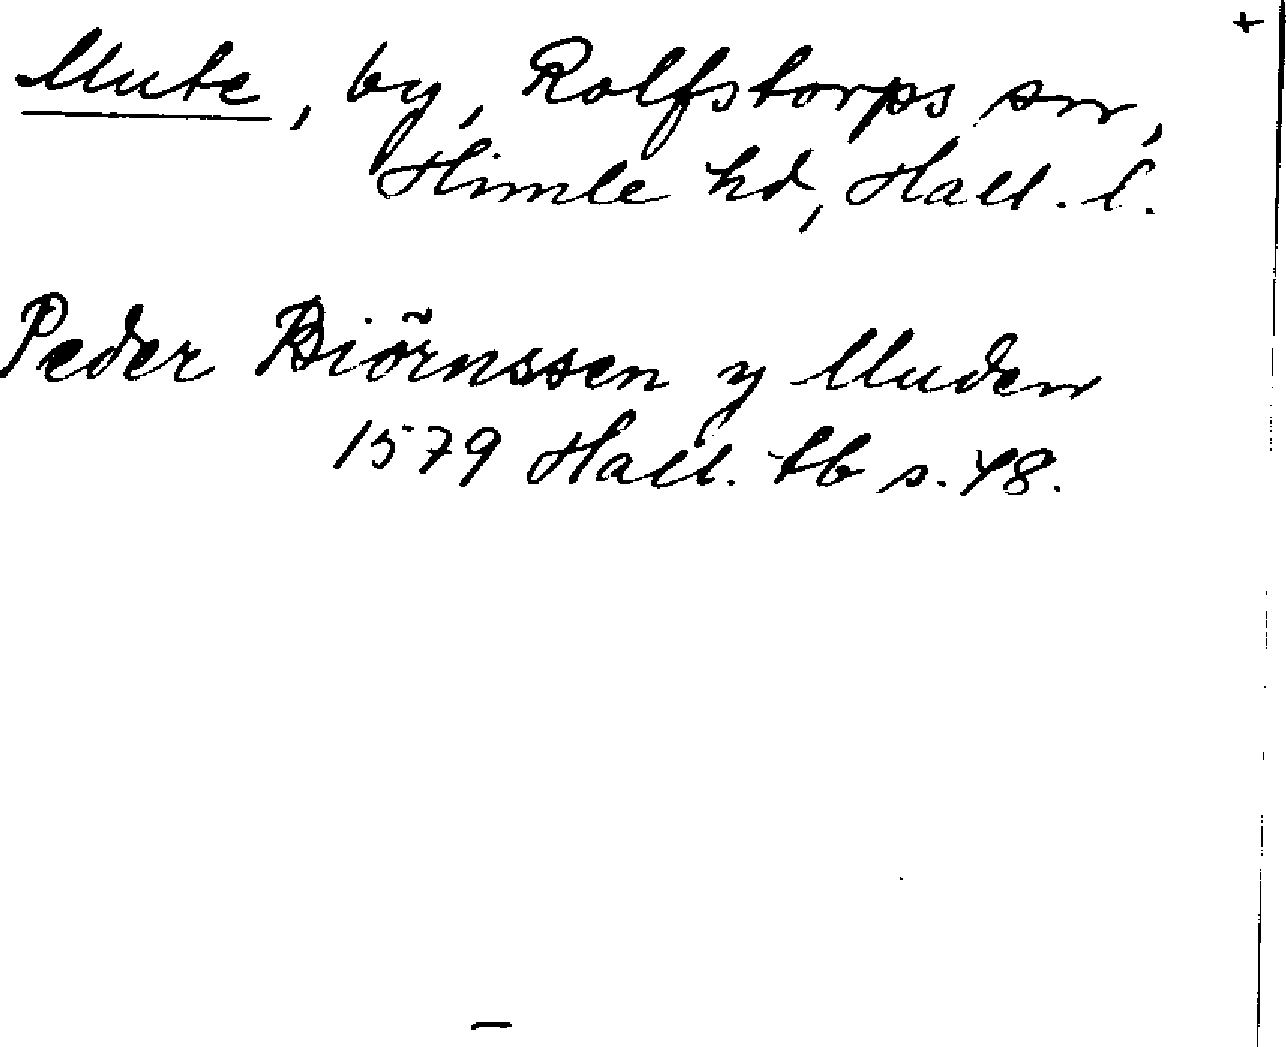 +
Mute, by, Rolfstorps sn,
Himle hd, Hall. l.
Peder Biörnssen y Muden
1579 Hall. tb s. 48.